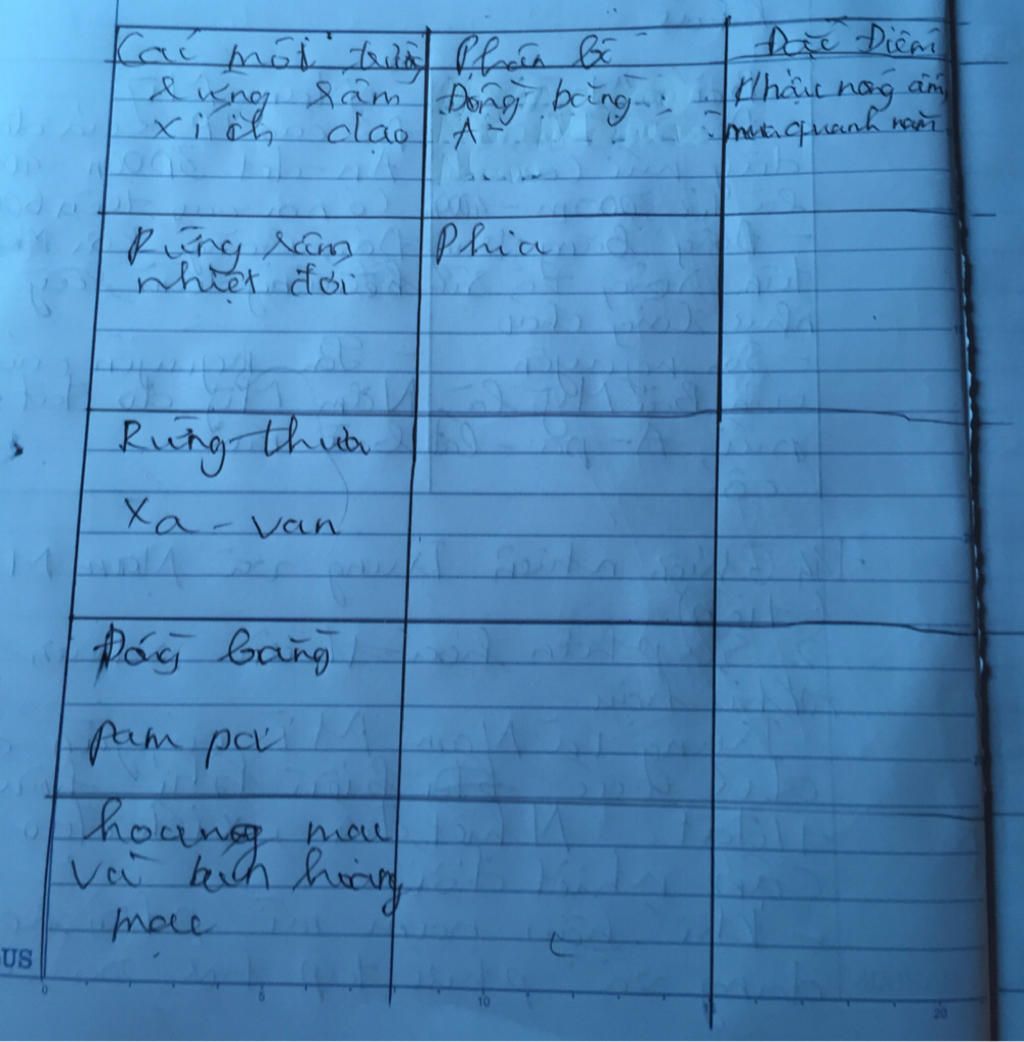 Các môi trường Phân bố Đặc Điểm
Rừng rậm Đồng bằng Khí hậu nóng ẩm,
xích đạo A- mưa quanh năm
Rừng rậm Phía
nhiệt đới
Rừng thưa
Xa-van
Đồng bằng
pam pa
hoang mạc
Và bán hoang
mạc
US
0 5 10 15 20